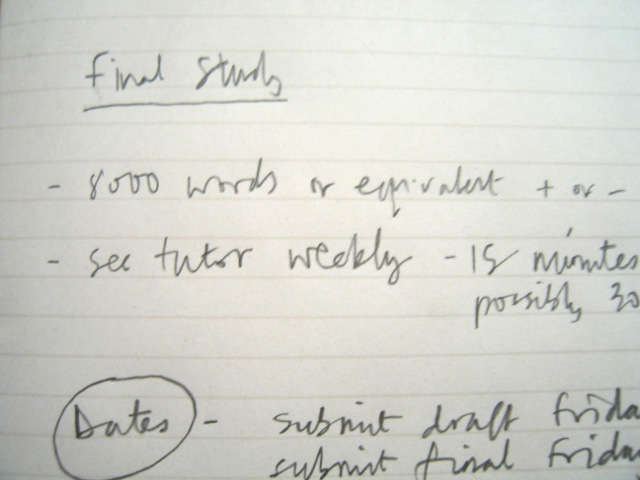 final study
- 8000 words or equivalent + or -
- see tutor weekly - 15 minutes
possibly 30
Dates - submit draft frida
submit final friday